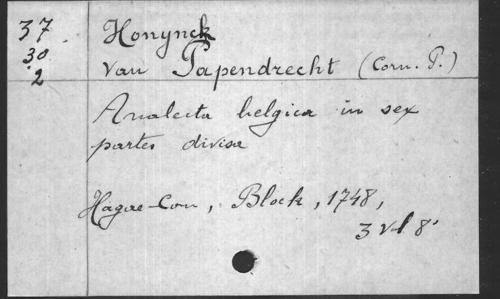 37
30
2
Honynck
van Papendrecht (Corn. P.)
Analecta belgica in sex
partes divisa
Hagae-Com, Block, 1748,
3 vol 8°